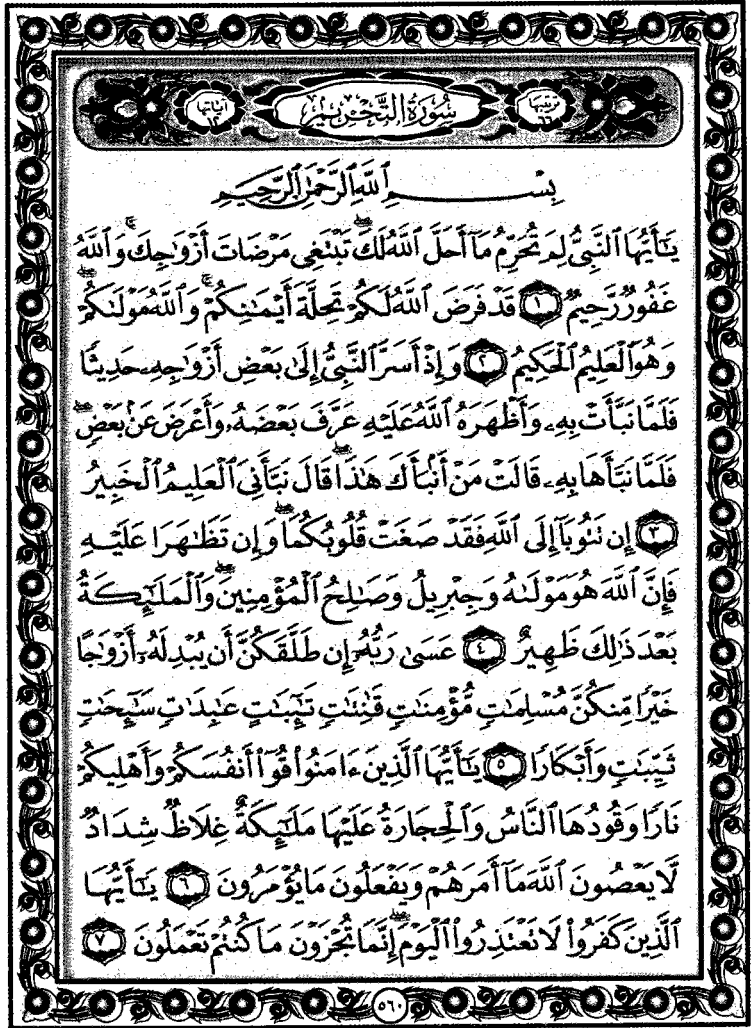 ترتيبها ٦٦
سُورَةُ التَّحْرِيمِ
آياتها ١٢
بِسْمِ ٱللَّهِ ٱلرَّحْمَٰنِ ٱلرَّحِيمِ
يَٰٓأَيُّهَا ٱلنَّبِىُّ لِمَ تُحَرِّمُ مَآ أَحَلَّ ٱللَّهُ لَكَۖ تَبْتَغِى مَرْضَاتَ أَزْوَٰجِكَۚ وَٱللَّهُ
غَفُورٌ رَّحِيمٌ ١ قَدْ فَرَضَ ٱللَّهُ لَكُمْ تَحِلَّةَ أَيْمَٰنِكُمْۚ وَٱللَّهُ مَوْلَىٰكُمْۖ
وَهُوَ ٱلْعَلِيمُ ٱلْحَكِيمُ ٢ وَإِذْ أَسَرَّ ٱلنَّبِىُّ إِلَىٰ بَعْضِ أَزْوَٰجِهِۦ حَدِيثًا
فَلَمَّا نَبَّأَتْ بِهِۦ وَأَظْهَرَهُ ٱللَّهُ عَلَيْهِ عَرَّفَ بَعْضَهُۥ وَأَعْرَضَ عَنۢ بَعْضٍۖ
فَلَمَّا نَبَّأَهَا بِهِۦ قَالَتْ مَنْ أَنۢبَأَكَ هَٰذَاۖ قَالَ نَبَّأَنِىَ ٱلْعَلِيمُ ٱلْخَبِيرُ
٣ إِن تَتُوبَآ إِلَى ٱللَّهِ فَقَدْ صَغَتْ قُلُوبُكُمَاۖ وَإِن تَظَٰهَرَا عَلَيْهِ
فَإِنَّ ٱللَّهَ هُوَ مَوْلَىٰهُ وَجِبْرِيلُ وَصَٰلِحُ ٱلْمُؤْمِنِينَۖ وَٱلْمَلَٰٓئِكَةُ
بَعْدَ ذَٰلِكَ ظَهِيرٌ ٤ عَسَىٰ رَبُّهُۥٓ إِن طَلَّقَكُنَّ أَن يُبْدِلَهُۥٓ أَزْوَٰجًا
خَيْرًا مِّنكُنَّ مُسْلِمَٰتٍ مُّؤْمِنَٰتٍ قَٰنِتَٰتٍ تَٰٓئِبَٰتٍ عَٰبِدَٰتٍ سَٰٓئِحَٰتٍ
ثَيِّبَٰتٍ وَأَبْكَارًا ٥ يَٰٓأَيُّهَا ٱلَّذِينَ ءَامَنُوا۟ قُوٓا۟ أَنفُسَكُمْ وَأَهْلِيكُمْ
نَارًا وَقُودُهَا ٱلنَّاسُ وَٱلْحِجَارَةُ عَلَيْهَا مَلَٰٓئِكَةٌ غِلَاظٌ شِدَادٌ
لَّا يَعْصُونَ ٱللَّهَ مَآ أَمَرَهُمْ وَيَفْعَلُونَ مَا يُؤْمَرُونَ ٦ يَٰٓأَيُّهَا
ٱلَّذِينَ كَفَرُوا۟ لَا تَعْتَذِرُوا۟ ٱلْيَوْمَۖ إِنَّمَا تُجْزَوْنَ مَا كُنتُمْ تَعْمَلُونَ ٧
٥٦٠